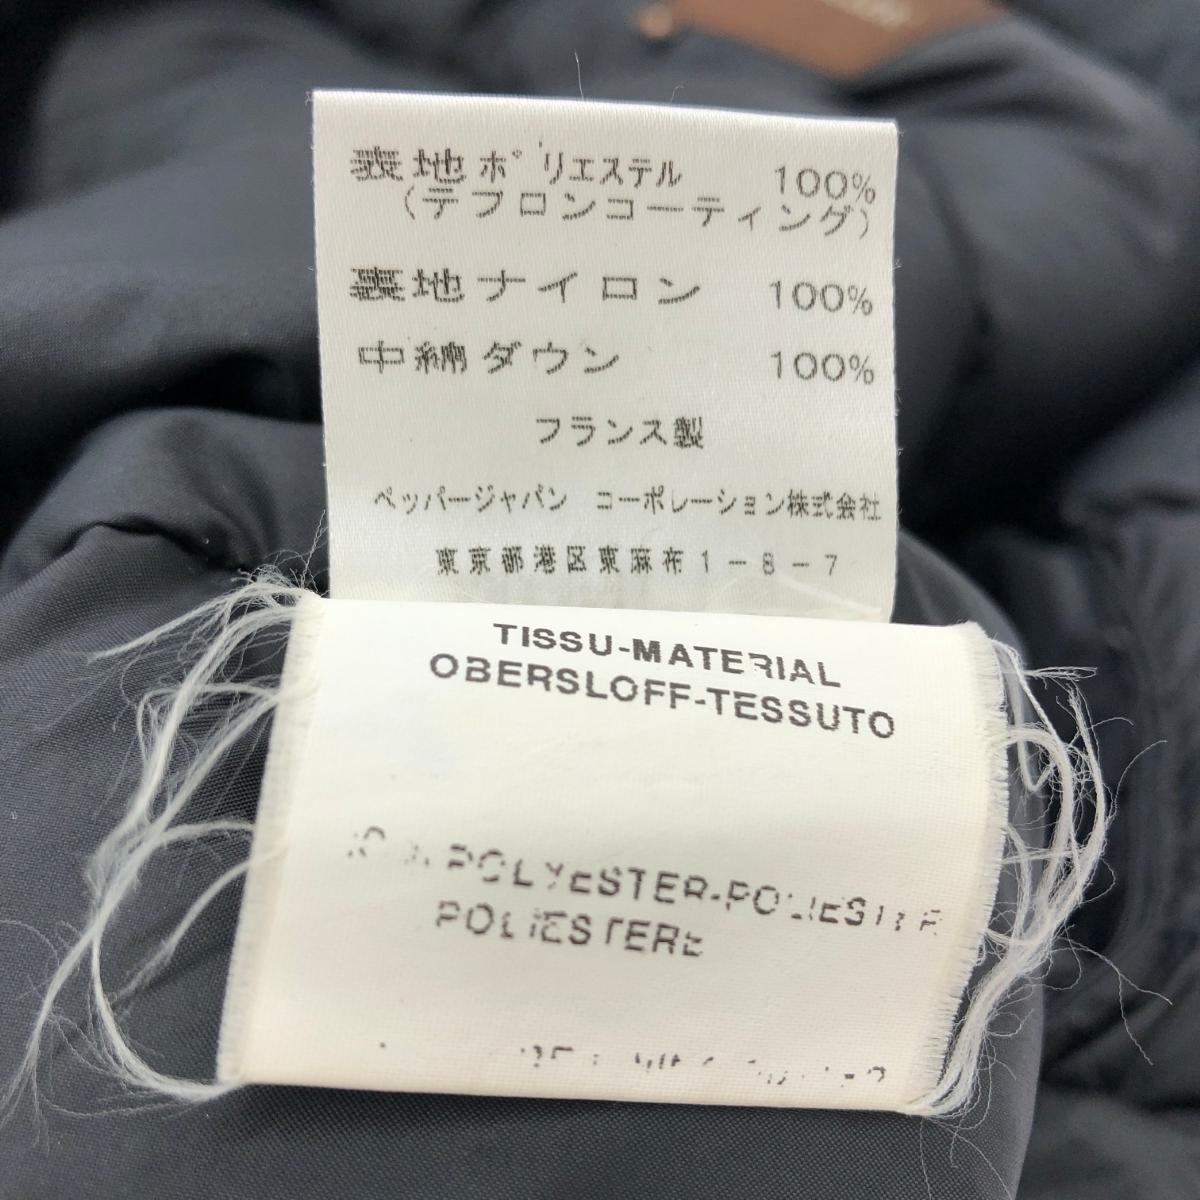 表地ポリエステル 100%
(テフロンコーティング)
裏地ナイロン 100%
中綿ダウン 100%
フランス製
ペッパージャパン コーポレーション株式会社
東京都港区東麻布1-8-7
TISSU-MATERIAL
OBERSLOFF-TESSUTO
POLYESTER-POLIESTER
POLIESTERE